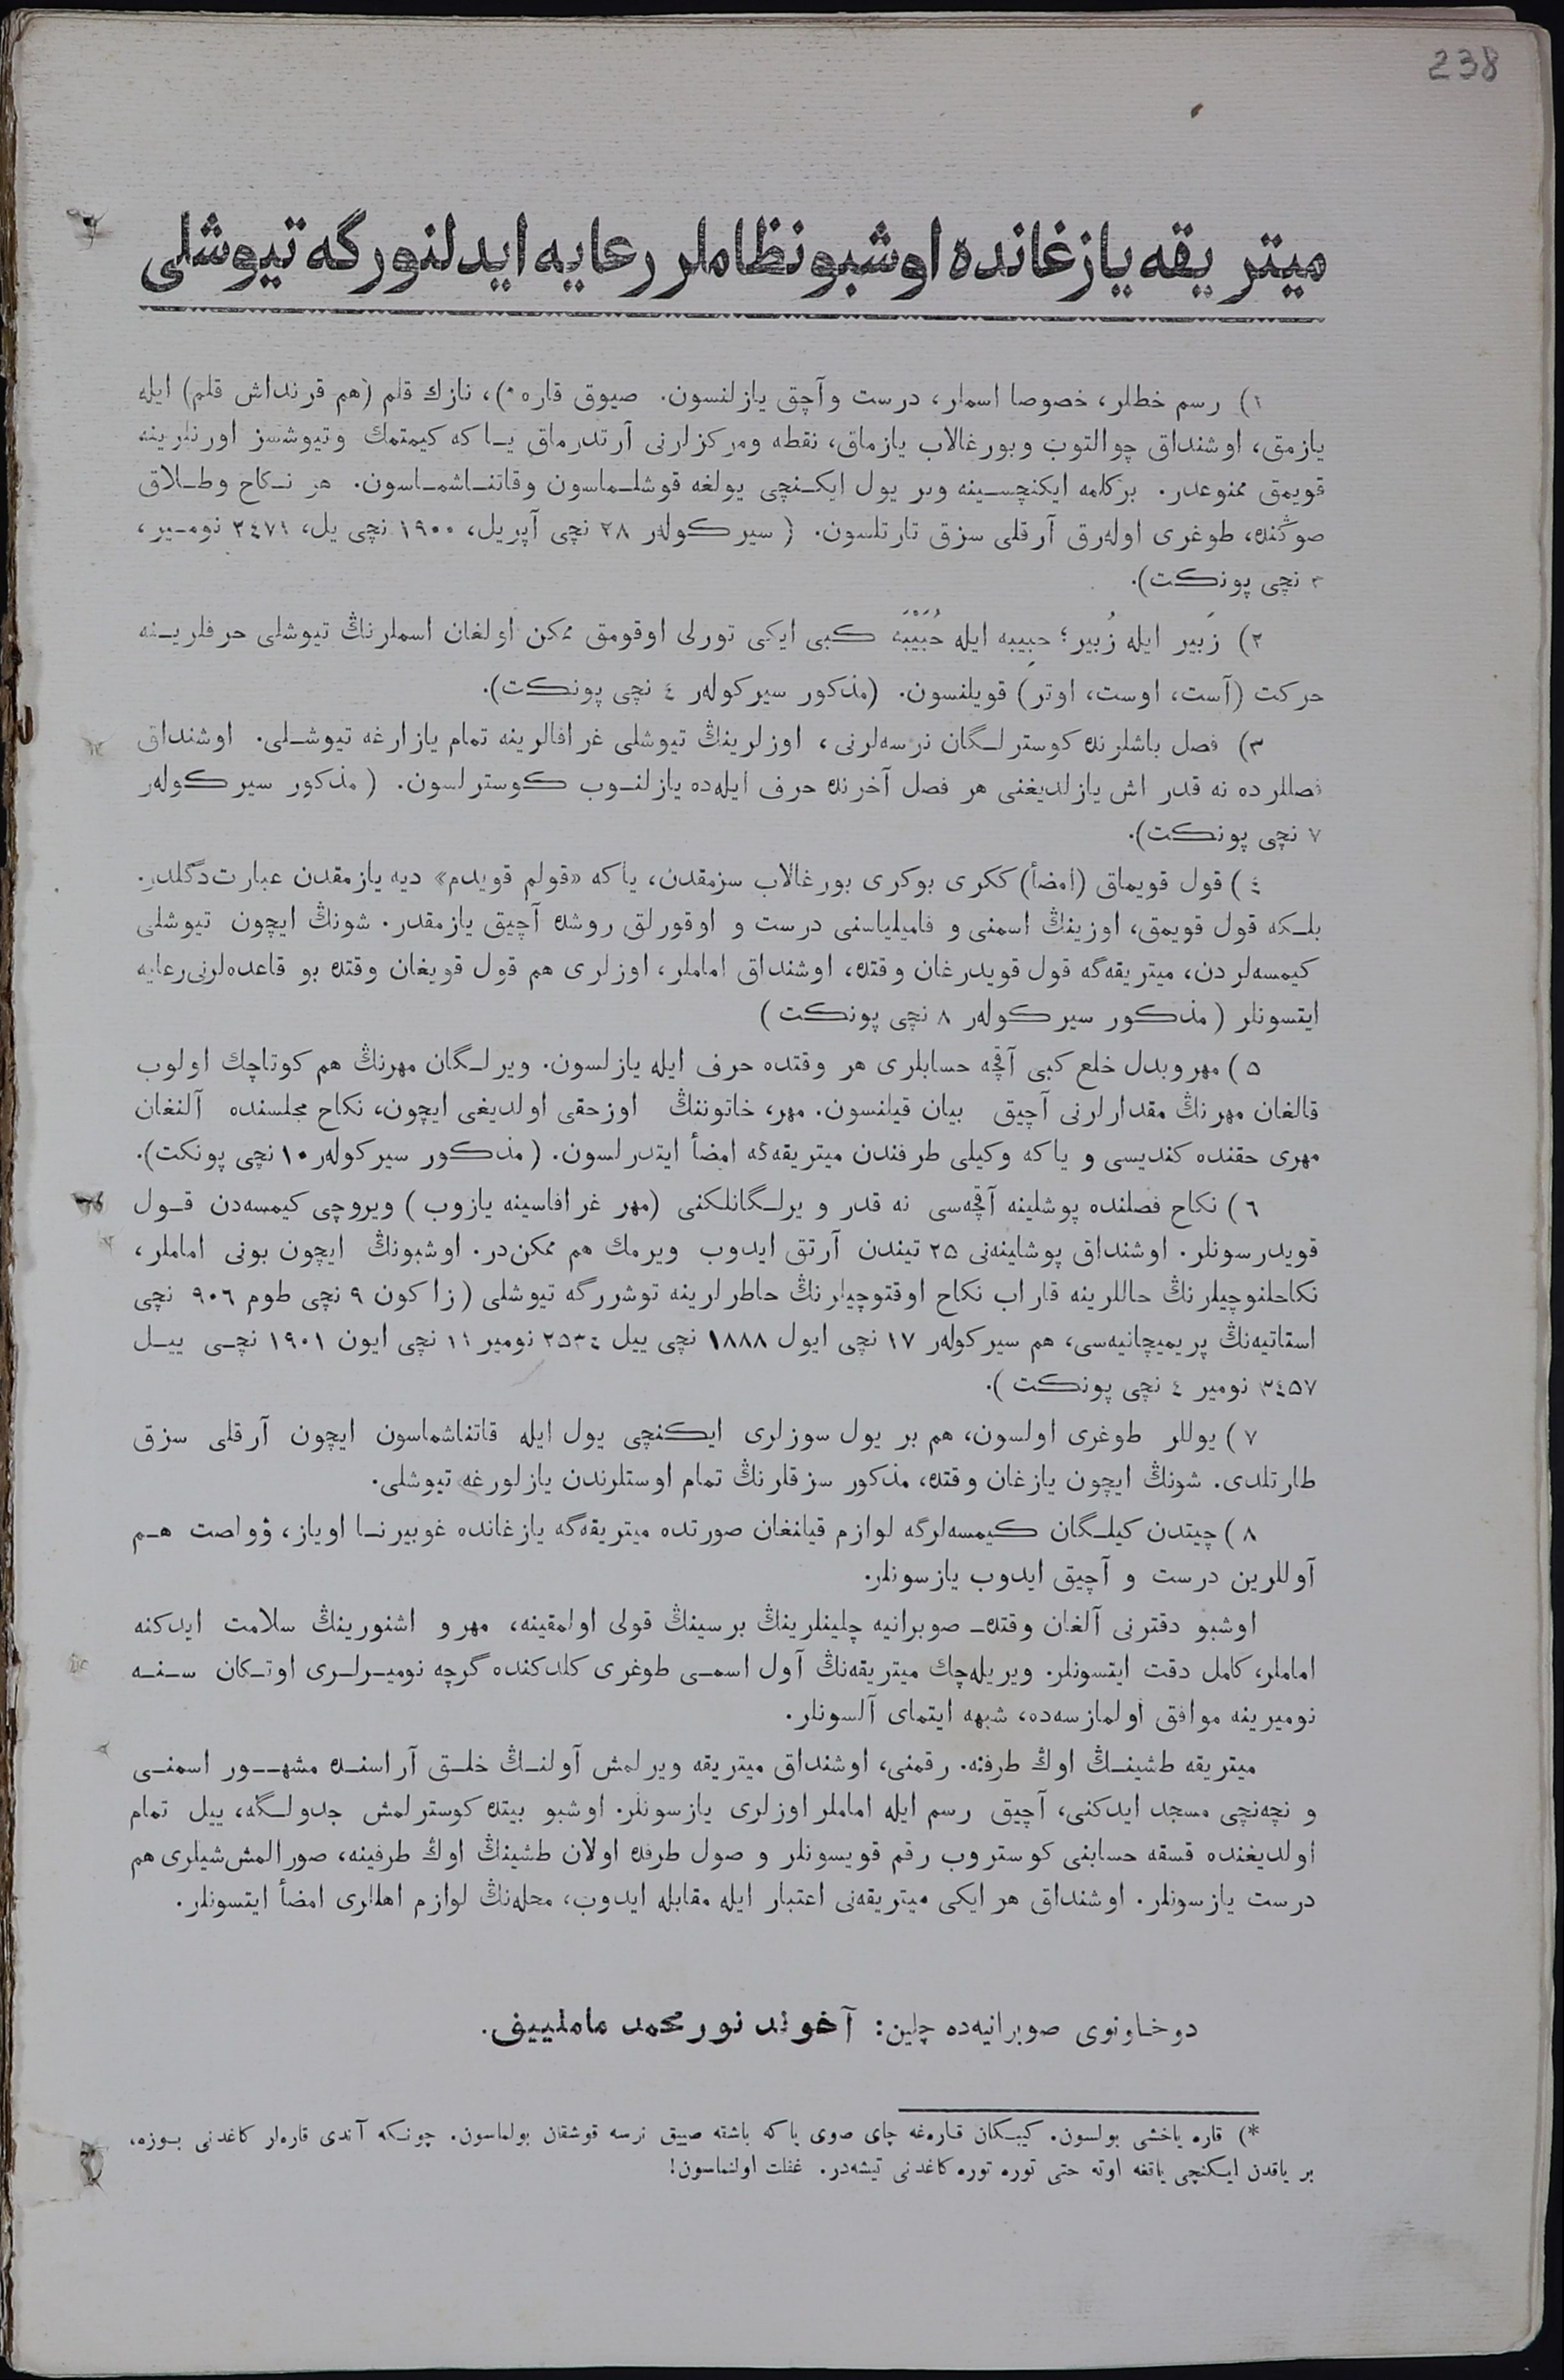 238
میتریقه یازغانده اوشبو نظاملر رعایه ایدلنورگه تیوشلی
۱) رسم خطلر، خصوصا اسملر، درست وآچق یازلنسون. صیوق قاره*)، نازك قلم (هم قرنداش قلم) ایله
یازمق، اوشنداق چوالتوب وبورغالاب یازماق، نقطه ومركزلرنی آرتدرماق یـا كه كیمتمك وتیوشسز اورنلرینه
قویمق ممنوعدر. بركلمه ایكنچسـینه وبر یول ایكـنچی یولغه قوشلـماسون وقاتنـاشمـاسون. هر نـكاح وطـلاق
صوڭنده، طوغری اوله‌رق آرقلی سزق تارتلسون. ( سیركوله‌ر ۲۸ نچی آپریل، ۱۹۰۰ نچی یل، ۲۴۷۱ نومـیر،
۳ نچی پونكت).
۲) زَبیر ایله زُبیر؛ حبِیبه ایله حُبَیْبَه كبی ایكی تورلی اوقومق ممكن اولغان اسملرنڭ تیوشلی حرفلریـنه
حركت (آست، اوست، اوتر) قویلنسون. (مذكور سیركوله‌ر ٤ نچی پونكت).
۳) فصل باشلرنده كوسترلـگان نرسه‌لرنی، اوزلرینڭ تیوشلی غرافالرینه تمام یازارغه تیوشـلی. اوشنداق
فصللرده نه قدر اش یازلدیغنی هر فصل آخرنده حرف ایله‌ده یازلنـوب كوسترلسون. ( مذكور سیركوله‌ر
۷ نچی پونكت).
٤) قول قویماق (امضأ) ككری بوكری بورغالاب سزمقدن، یا كه «قولم قویدم» دیه یازمقدن عبارت دگلدر.
بلـكه قول قویمق، اوزینڭ اسمنی و فامیلیاسنی درست و اوقورلق روشده آچیق یازمقدر. شونڭ ایچون تیوشلی
كیمسه‌لردن، میتریقه‌گه قول قویدرغان وقتده، اوشنداق اماملر، اوزلری هم قول قویغان وقتده بو قاعده‌لرنی رعایه
ایتسونلر ( مذكور سیركوله‌ر ۸ نچی پونكت )
۵) مهر وبدل خلع كبی آقچه حسابلری هر وقتده حرف ایله یازلسون. ویرلـگان مهرنڭ هم كوتاچك اولوب
قالغان مهرنڭ مقدارلرنی آچیق بیان قیلنسون. مهر، خاتوننڭ اوز حقی اولدیغی ایچون، نكاح مجلسنده آلنغان
مهری حقنده كندیسی و یا كه وكیلی طرفندن میتریقه‌گه امضأ ایتدرلسون. ( مذكور سیركوله‌ر ۱۰ نچی پونكت).
٦) نكاح فصلنده پوشلینه آقچه‌سی نه قدر ویرلـگانلكنی (مهر غرافاسینه یازوب ) ویروچی كیمسه‌دن قـول
قویدرسونلر. اوشنداق پوشلینه‌نی ۲۵ تیندن آرتق ایدوب ویرمك هم ممكن‌در. اوشبونڭ ایچون بونی اماملر،
نكاحلنوچیلرنڭ حاللرینه قاراب نكاح اوقتوچیلرنڭ خاطرلرینه توشررگه تیوشلی ( زاكون ۹ نچی طوم ۹۰٦ نچی
استاتیه‌نڭ پریمیچانیه‌سی، هم سیركوله‌ر ۱۷ نچی ایول ۱۸۸۸ نچی ییل ۲۵۳٤ نومیر ۱۱ نچی ایون ۱۹۰۱ نچـی ییـل
۳٤۵۷ نومیر ٤ نچی پونكت ).
۷) یوللر طوغری اولسون، هم بر یول سوزلری ایكنچی یول ایله قاتناشماسون ایچون آرقلی سزق
طارتلدی. شونڭ ایچون یازغان وقتده، مذكور سزقلرنڭ تمام اوستلرندن یازلورغه تیوشلی.
۸) چیتدن كیلـگان كیمسه‌لرگه لوازم قیانغان صورتده میتریقه‌گه یازغانده غوبیرنـا اویاز، ؤولصت هـم
آوللرین درست و آچیق ایدوب یازسونلر.
اوشبو دفترنی آلغان وقتده‌ـ صوبرانیه چلینلرینڭ برسینڭ قولی اولمقینه، مهر و اشنورینڭ سلامت ایدكنه
اماملر، كامل دقت ایتسونلر. ویریله‌چك میتریقه‌نڭ آول اسمـی طوغری كلدكنده گرچه نومیـرلـری اوتـكان سـنـه
نومیرینه موافق اولمازسه‌ده، شبهه ایتمای آلسونلر.
میتریقه طشینـڭ اوڭ طرفنه. رقمنی، اوشنداق میتریقه ویرلمش آولنـڭ خلـق آراسنـده مشهــور اسمنـی
و نچه‌نچی مسجد ایدكنی، آچیق رسم ایله اماملر اوزلری یازسونلر. اوشبو بیتده كوسترلمش جدولـگه، ییل تمام
اولدیغنده قسقه حسابنی كوستروب رقم قویسونلر و صول طرفده اولان طشینڭ اوڭ طرفینه، صورالمش شیلری هم
درست یازسونلر. اوشنداق هر ایكی میتریقه‌نی اعتبار ایله مقابله ایدوب، محله‌نڭ لوازم اهللری امضأ ایتسونلر.
دوخاونوی صوبرانیه‌ده چلین: آخوند نورمحمد ماملییف.
*) قاره یاخشی بولسون. كیبـكان قـاره‌غه چای صوی یا كه باشقه صییق نرسه قوشقان بولماسون. چونـكه آندی قاره‌لر كاغدنی بـوزه،
بر یاقدن ایـكنچی یاقغه اوته حتی توره توره كاغدنی تیشه‌در. غفلت اولنماسون!